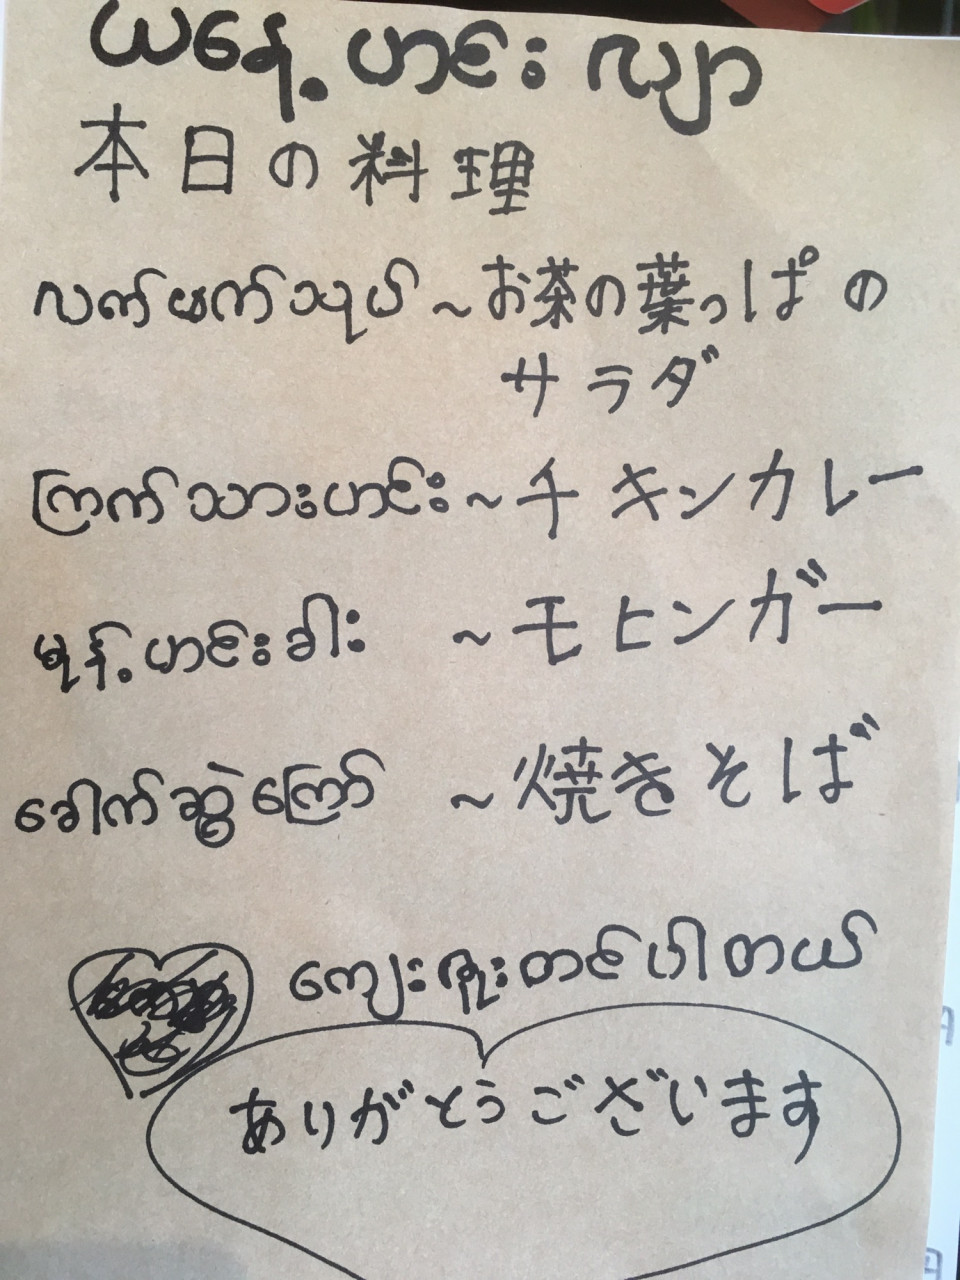 ယနေ့ ဟင်းလျာ
本日の料理
လက်ဖက်သုပ် ~ お茶の葉っぱの
サラダ
ကြက်သားဟင်း ~ チキンカレー
မုန့်ဟင်းခါး ~ モヒンガー
ခေါက်ဆွဲကြော် ~ 焼きそば
ကျေးဇူးတင်ပါတယ်
ありがとうございます